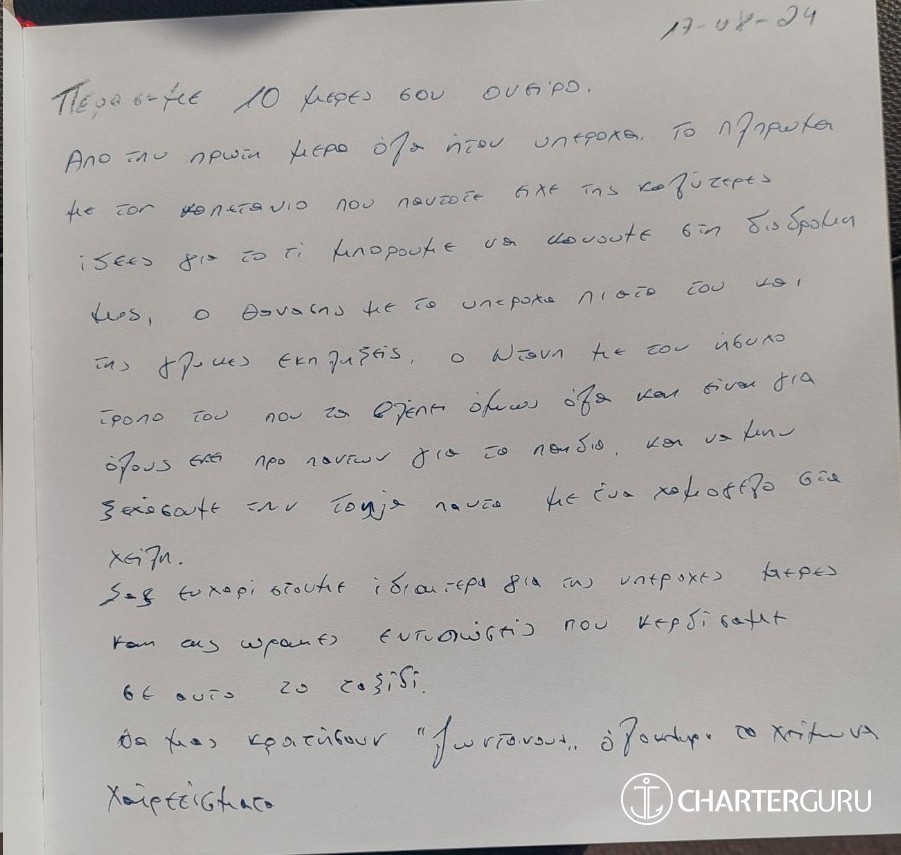 17-08-24
Περασαμε 10 μερες σου ονειρο.
Απο την πρωτη μερα όλα ήταν υπεροχα. Το πληρωμα
με τον καπετανιο που παντοτε ειχε της καλύτερες
ιδεες για το τι μπορουμε να κανουμε στη διαδρομη
μας, ο Θανασης με τα υπεροχα πιατα του και
της γλυκες εκπληξεις, ο Νταννη με τον ήσυχο
τροπο του που τα βλέπει όμως όλα και ειναι για
όλους εκει προ παντων για τα παιδια, και να μην
ξεχάσουμε την παντα με ένα χαμογελο στα
χείλη.
Σας ευχαριστουμε ιδιαιτερα για της υπεροχες μερες
και της ωραιες εντυπώσεις που κερδισαμε
σε αυτο το ταξίδι.
Θα μας κρατήσουν "ζωντανους" όλοκληρο το χειμωνα
Χαιρετίσματα
CHARTERGURU